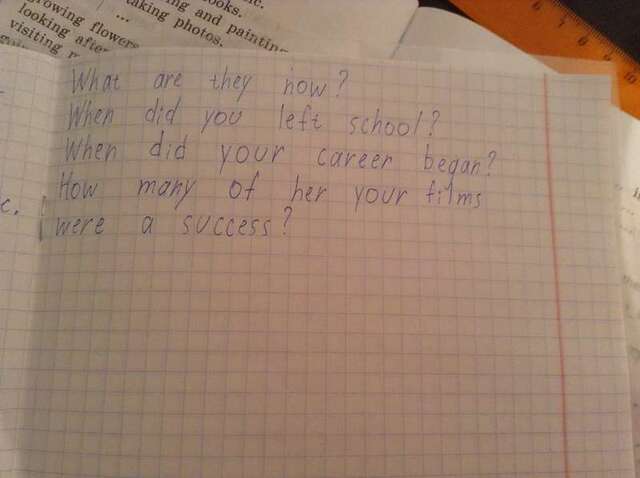 ooks.
growing flowers
ing and painting
looking after
taking photos.
visiting
What are they now?
When did you left school?
When did your career began?
How many of her your films
were a success?
c.
6 7 8 9 10